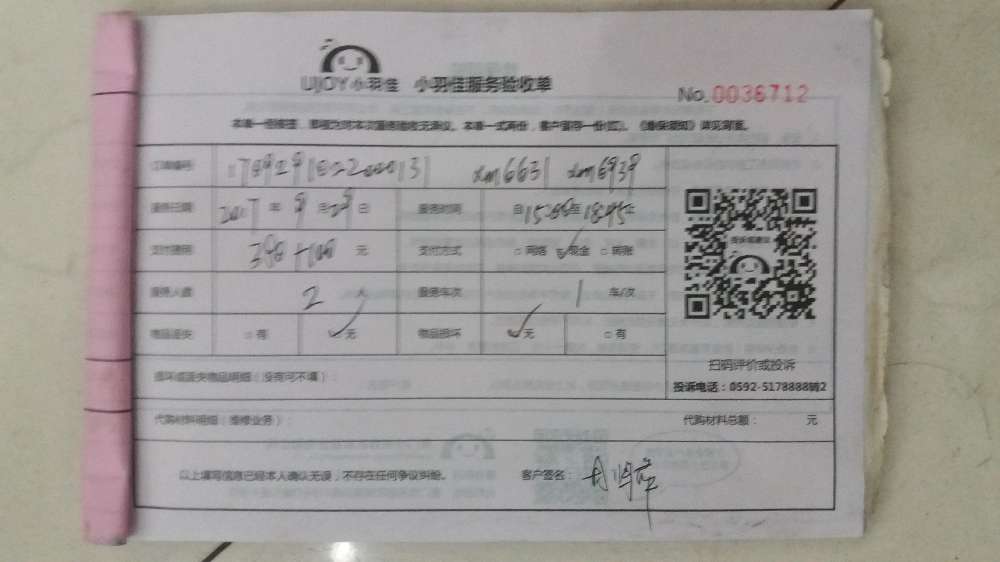 UJOY小羽佳 小羽佳服务验收单
No.0036712
本单一经签签，即视为对本次服务验收无异议。本单一式两份，客户留存一份(红)。《维保须知》详见背面。
订单编号 xm6631 xm6939
服务日期 2017年9月29日 服务时间 自15:00至18:45止
支付费用 300+100元 支付方式 □网络 ☑现金 □转账
服务人数 2人 服务车次 1车/次
物品丢失 □有 ☑无 物品损坏 ☑无 □有
投诉或建议
扫码评价或投诉
投诉电话：0592-5178888转2
损坏或丢失物品明细（没有可不填）：
代购材料明细（维修业务）： 代购材料总额： 元
以上填写信息已经本人确认无误，不存在任何争议纠纷。 客户签名：